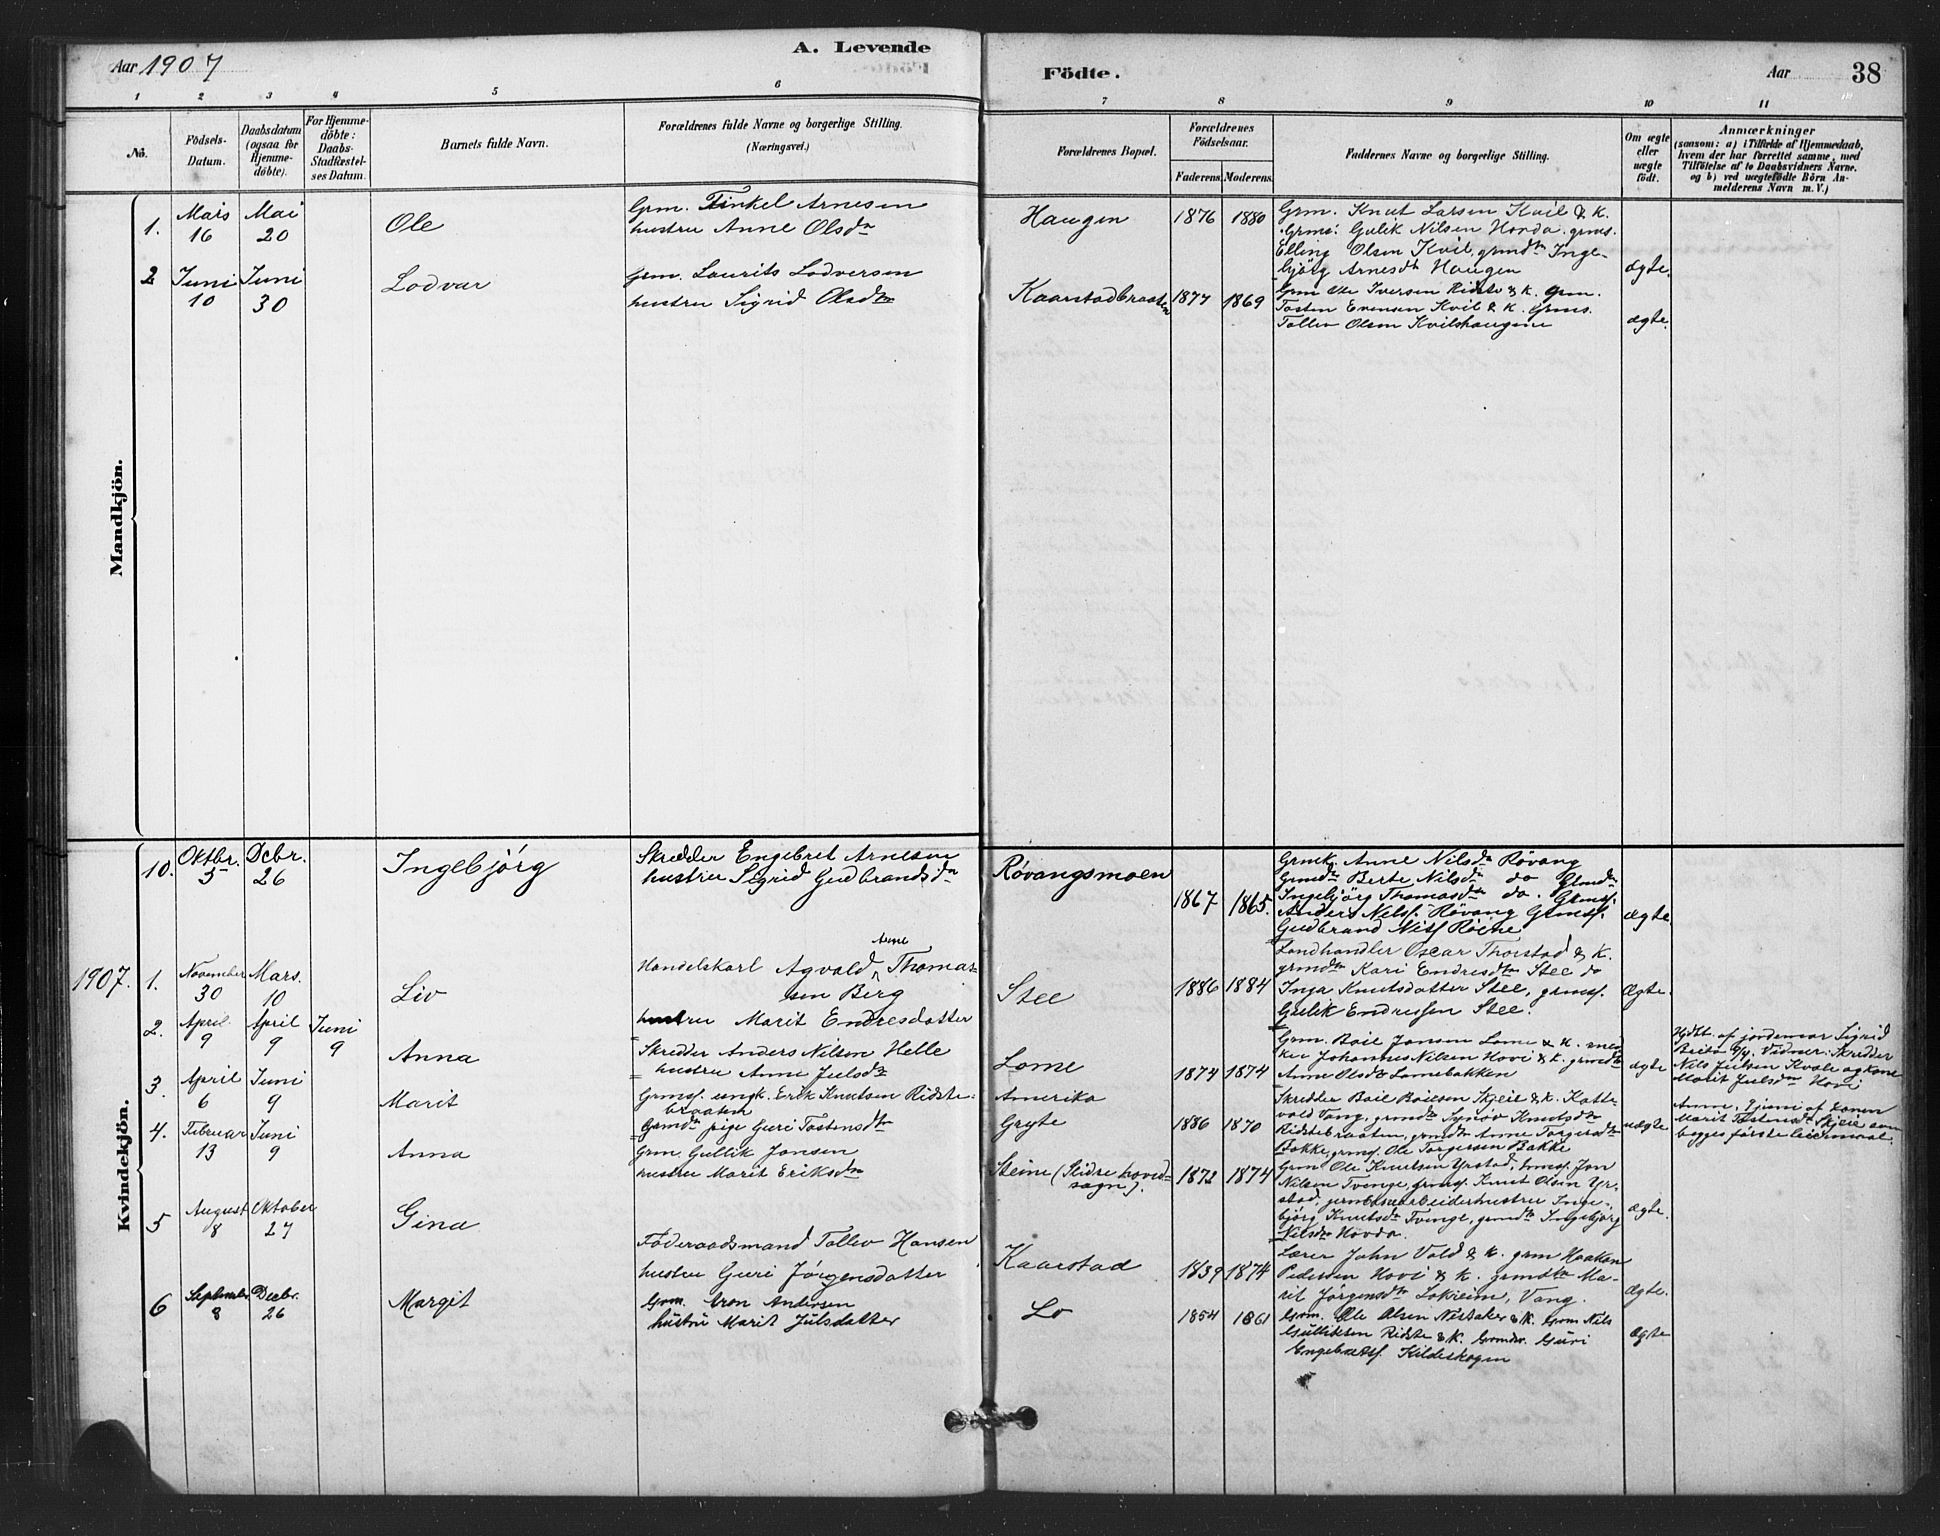 Aar 1907
A. Levende
Födte.
Aar
38
1 2 3 4 5 6 7 8 9 10 11
No.
Födsels-
Datum.
Daabsdatum
(ogsaa for
Hjemme-
döbte).
For Hjemme-
döbte:
Daabs-
Stadfæstel-
ses Datum.
Barnets fulde Navn.
Forældrenes fulde Navne og borgerlige Stilling.
(Næringsvei.)
Forældrenes Bopæl.
Forældrenes
Födselsaar.
Faderens. Moderens.
Faddernes Navne og borgerlige Stilling.
Om ægte
eller
uægte
födt.
Anmærkninger
(saasom: a) i Tilfælde af Hjemmedaab,
hvem der har forrettet samme, med
Tilföielse af to Daabsvidners Navne.
og b) ved uægtefödte Börn An-
melderens Navn m. V.)
Mandkjön.
1.
Mars
16
Mai
20
Ole
Grm. Tinkel Arnesen
hustru Anne Olsdn
Haugen
1876 1880
Grm. Knut Larsen Kvil & k.
Grms. Gulik Nilsen Hovda. grms.
Elling Olsen Kvil, grmdtn Inge-
björg Arnesdtn Haugen
ægte.
2
Juni
10
Juni
30
Lodvar
Grm. Laurits Lodversen
hustru Sigrid Olsdtn
Kaarstadbraaten
1877 1869
Grm Ole Iversen Ridste & k. Grm.
Tosten Evensen Kvil & k. Grms.
Tollev Olsen Kvilshaugene
ægte.
Kvindekjön.
10.
Oktbr.
5
Dcbr.
26
Ingebjörg
Skrædder Engebret Arnesen
hustru Sigrid Gudbrandsdn
Røvangsmoen
1867 1865.
Grmk. Anne Nilsdn Røvang
Grmdtn Berte Nilsdn do Grmdtn
Ingebjörg Thomasdtn do. Grmsf.
Anders Nilss. Røvang Grmsf.
Gudbrand Nilsf Røine
ægte.
1907.
1.
November
30
Mars.
10
Liv
Handelskarl Agvald Arne Thomas-
sen Berg
hustru Marit Endresdatter
Stee
1886 1884
Landhandler Oscar Thorstad & k.
grmdtn Kari Endresdtn Stee do
Inga Knutsdatter Stee, grmsf.
Gulik Endressen Stee.
Ægte.
2.
April
9
April
9
Juni
9
Anna
Skrædder Anders Nilsen Helle
hustru Anne Julsdtn
Lome
1874 1874
Grm. Boie Jonsen Lome & k. sned
ker Johannes Nilsen Hovi & k. grmdtn
Anne Olsdtn Lomebakken
ægte
Hjdt. af jordemor Sigrid
Beito 9/4. Vidner: Skrædder
Nils Julsen Kvale og kone
Marit Julsdtn Hovi
3.
April
6
Juni
9
Marit
Grmsf. ungk. Erik Knutsen Ridste-
braaten
Grmdtn pige Guri Tostensdtn
Amerika
Gryte
1886 1870
Skrædder Boie Boiesen Skjeie & k. Katte-
vold Vang, grmdtn Synøv Knutsdtn
Ridstebraaten, grmdtn Anne Torgersdtn
Bakke, grmsf. Ole Torgersen Bakke
uægte
Anm. 9 juni af konen
Marit Tostensdtn Skjeie som
begges første leiermaal.
4.
Februar
13
Juni
9
Anna
Grm. Gullik Jonsen
hustru Marit Eriksdn
Steine (Slidre hoved-
sogn).
1872 1874
Grm Ole Knutsen Yrstad, Grmsf. Jon
Nilsen Tvenge, grmsf. Knut Olsen Yr-
stad, jernbanearbeiderhustru Inge-
björg Knutsdtn Tvenge, grmdtn Ingebjörg
Nilsdtn Hovda.
ægte.
5
August
8
Oktober
27
Gina
Føderaadsmand Tollev Hansen
hustru Guri Jørgensdatter
Kaarstad
1839 1874
Lærer John Vold & k. grm Haakon
Pedersen Hovi & k. grmdtn Ma-
rit Jørgensdtn Lokreim, Vang.
Ægte.
6
September
8
Decbr.
26
Margit
Grm. Aron Andersen
hustru Marit Julsdatter
Lo
1854 1861
Grm. Ole Olsen Nestaker & k. Grm Nils
Gulliksen Ridste & k. Grmdtr. Guri
Engebretsf. Kildeskogen
Ægte